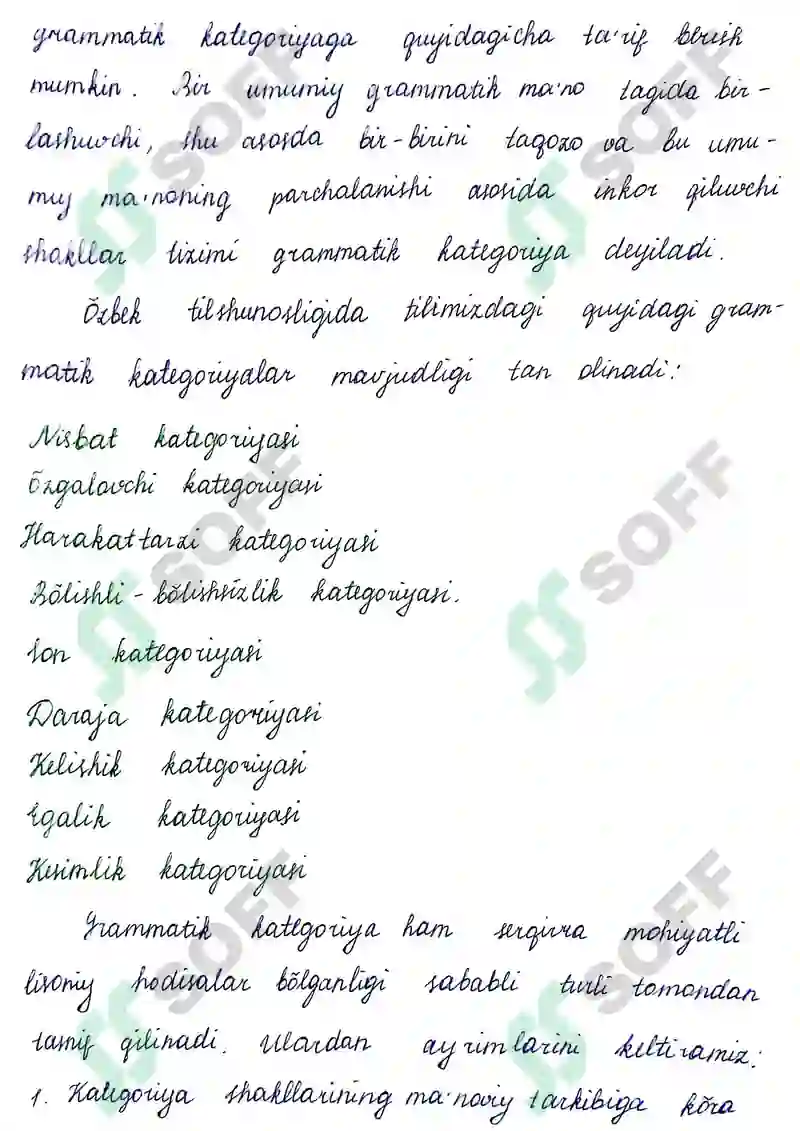 grammatik kategoriyaga quyidagicha ta'rif berish
mumkin. Bir umumiy grammatik ma'no tagida bir-
lashuvchi, shu asosda bir-birini taqozo va bu umu-
miy ma'noning parchalanishi asosida inkor qiluvchi
shakllar tizimi grammatik kategoriya deyiladi.
Õzbek tilshunosligida tilimizdagi quyidagi gram-
matik kategoriyalar mavjudligi tan olinadi:
Nisbat kategoriyasi
Õzgalovchi kategoriyasi
Harakat tarzi kategoriyasi
Bõlishli - bõlishsizlik kategoriyasi.
Son kategoriyasi
Daraja kategoriyasi
Kelishik kategoriyasi
Egalik kategoriyasi
Kesimlik kategoriyasi
Grammatik kategoriya ham serqirra mohiyatli
lisoniy hodisalar bõlganligi sababli turli tomondan
tasnif qilinadi. Ulardan ayrimlarini keltiramiz:
1. Kategoriya shakllarining ma'noviy tarkibiga kõra
SOFF
SOFF
SOFF
SOFF
SOFF
SOFF